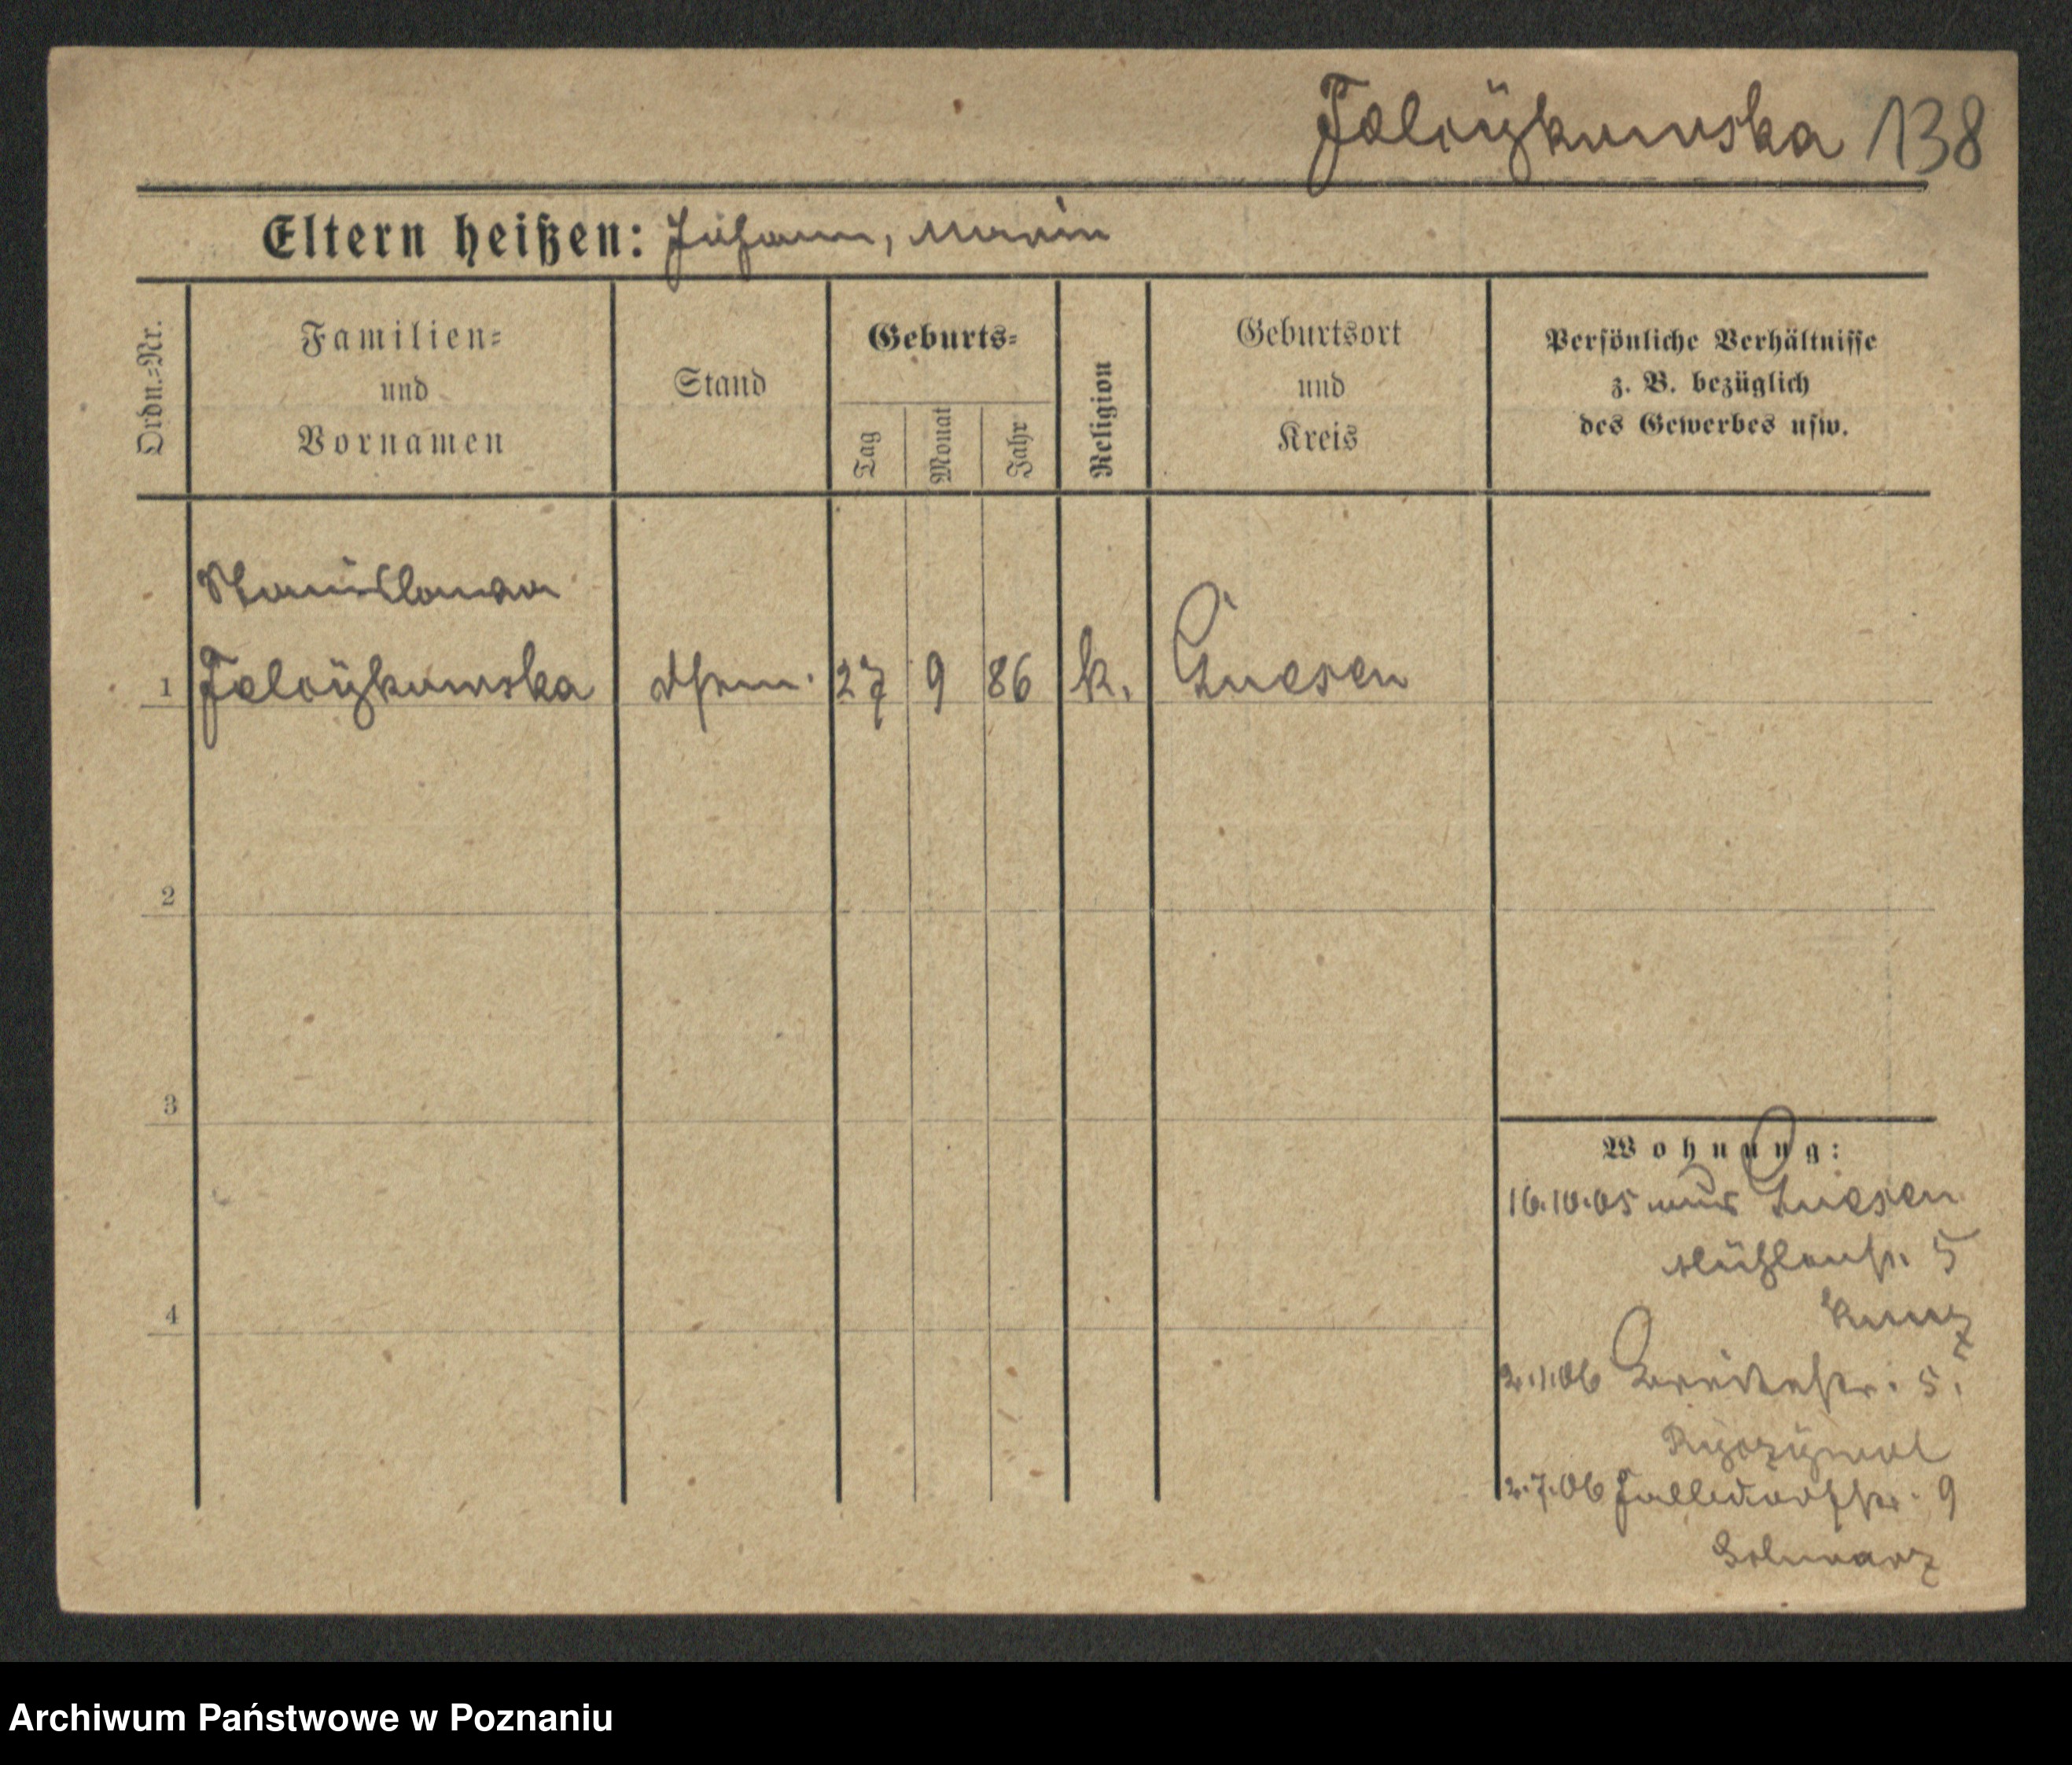 Felczykowska 138
Eltern heißen: Johann, Marie
Ordn.=Nr.
Familien=
und
Vornamen
Stand
Geburts=
Tag
Monat
Jahr
Religion
Geburtsort
und
Kreis
Persönliche Verhältnisse
z. B. bezüglich
des Gewerbes usw.
Stanislawa
1 27 9 86 k. Gnesen
2
3
4
Wohnung:
16.10.05 aus Gnesen
Mühlenstr. 5
2.1.06 Breitestr. 5.
2.7.06 9
Schwarz
Archiwum Państwowe w Poznaniu